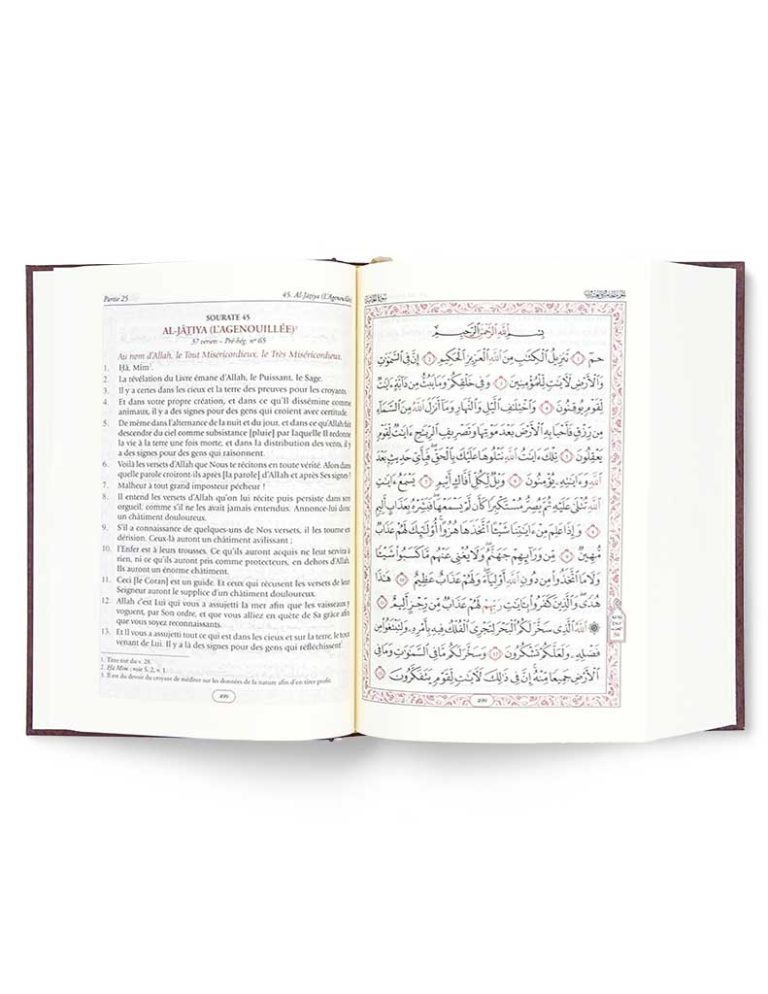 Partie 25
45. Al-Jāṯiya (L'Agenouillée)
SOURATE 45
AL-JĀṮIYA (L'AGENOUILLÉE)¹
37 versets – Pré-hég. nº 65
Au nom d'Allah, le Tout Miséricordieux, le Très Miséricordieux.
1. Ḥâ, Mîm².
2. La révélation du Livre émane d'Allah, le Puissant, le Sage.
3. Il y a certes dans les cieux et la terre des preuves pour les croyants.
4. Et dans votre propre création, et dans ce qu'Il dissémine comme
animaux, il y a des signes pour des gens qui croient avec certitude.
5. De même dans l'alternance de la nuit et du jour, et dans ce qu'Allah fait
descendre du ciel comme subsistance [pluie] par laquelle Il redonne
la vie à la terre une fois morte, et dans la distribution des vents, il y
a des signes pour des gens qui raisonnent.
6. Voilà les versets d'Allah que Nous te récitons en toute vérité. Alors dans
quelle parole croiront-ils après [la parole] d'Allah et après Ses signes !
7. Malheur à tout grand imposteur pécheur !
8. Il entend les versets d'Allah qu'on lui récite puis persiste dans son
orgueil, comme s'il ne les avait jamais entendus. Annonce-lui donc
un châtiment douloureux.
9. S'il a connaissance de quelques-uns de Nos versets, il les tourne en
dérision. Ceux-là auront un châtiment avilissant ;
10. l'Enfer est à leurs trousses. Ce qu'ils auront acquis ne leur servira à
rien, ni ce qu'ils auront pris comme protecteurs, en dehors d'Allah.
Ils auront un énorme châtiment.
11. Ceci [le Coran] est un guide. Et ceux qui récusent les versets de leur
Seigneur auront le supplice d'un châtiment douloureux.
12. Allah c'est Lui qui vous a assujetti la mer afin que les vaisseaux y
voguent, par Son ordre, et que vous alliez en quête de Sa grâce afin
que vous soyez reconnaissants.
13. Et Il vous a assujetti tout ce qui est dans les cieux et sur la terre, le tout
venant de Lui. Il y a là des signes pour des gens qui réfléchissent³.
1. Titre tiré du v. 28.
2. Ḥâ Mîm : voir S. 2, v. 1.
3. Il est du devoir du croyant de méditer sur les données de la nature afin d'en tirer profit.
499
بِسْمِ اللَّهِ الرَّحْمَٰنِ الرَّحِيمِ
حمٓ ١ تَنزِيلُ الْكِتَٰبِ مِنَ اللَّهِ الْعَزِيزِ الْحَكِيمِ ٢ إِنَّ فِي السَّمَٰوَٰتِ
وَالْأَرْضِ لَءَايَٰتٍ لِّلْمُؤْمِنِينَ ٣ وَفِي خَلْقِكُمْ وَمَا يَبُثُّ مِن دَآبَّةٍ ءَايَٰتٌ
لِّقَوْمٍ يُوقِنُونَ ٤ وَاخْتِلَٰفِ الَّيْلِ وَالنَّهَارِ وَمَآ أَنزَلَ اللَّهُ مِنَ السَّمَآءِ
مِن رِّزْقٍ فَأَحْيَا بِهِ الْأَرْضَ بَعْدَ مَوْتِهَا وَتَصْرِيفِ الرِّيَٰحِ ءَايَٰتٌ لِّقَوْمٍ
يَعْقِلُونَ ٥ تِلْكَ ءَايَٰتُ اللَّهِ نَتْلُوهَا عَلَيْكَ بِالْحَقِّ فَبِأَيِّ حَدِيثٍ بَعْدَ
اللَّهِ وَءَايَٰتِهِ يُؤْمِنُونَ ٦ وَيْلٌ لِّكُلِّ أَفَّاكٍ أَثِيمٍ ٧ يَسْمَعُ ءَايَٰتِ
اللَّهِ تُتْلَىٰ عَلَيْهِ ثُمَّ يُصِرُّ مُسْتَكْبِرًا كَأَن لَّمْ يَسْمَعْهَا فَبَشِّرْهُ بِعَذَابٍ أَلِيمٍ
٨ وَإِذَا عَلِمَ مِنْ ءَايَٰتِنَا شَيْـًٔا اتَّخَذَهَا هُزُوًا أُولَٰٓئِكَ لَهُمْ عَذَابٌ
مُّهِينٌ ٩ مِّن وَرَآئِهِمْ جَهَنَّمُ وَلَا يُغْنِي عَنْهُم مَّا كَسَبُوا شَيْـًٔا
وَلَا مَا اتَّخَذُوا مِن دُونِ اللَّهِ أَوْلِيَآءَ وَلَهُمْ عَذَابٌ عَظِيمٌ ١٠ هَٰذَا
هُدًى وَالَّذِينَ كَفَرُوا بِـَٔايَٰتِ رَبِّهِمْ لَهُمْ عَذَابٌ مِّن رِّجْزٍ أَلِيمٌ ١١
۞ اللَّهُ الَّذِي سَخَّرَ لَكُمُ الْبَحْرَ لِتَجْرِيَ الْفُلْكُ فِيهِ بِأَمْرِهِ وَلِتَبْتَغُوا مِن
فَضْلِهِ وَلَعَلَّكُمْ تَشْكُرُونَ ١٢ وَسَخَّرَ لَكُم مَّا فِي السَّمَٰوَٰتِ وَمَا فِي
الْأَرْضِ جَمِيعًا مِّنْهُ إِنَّ فِي ذَٰلِكَ لَءَايَٰتٍ لِّقَوْمٍ يَتَفَكَّرُونَ ١٣
٤٩٩